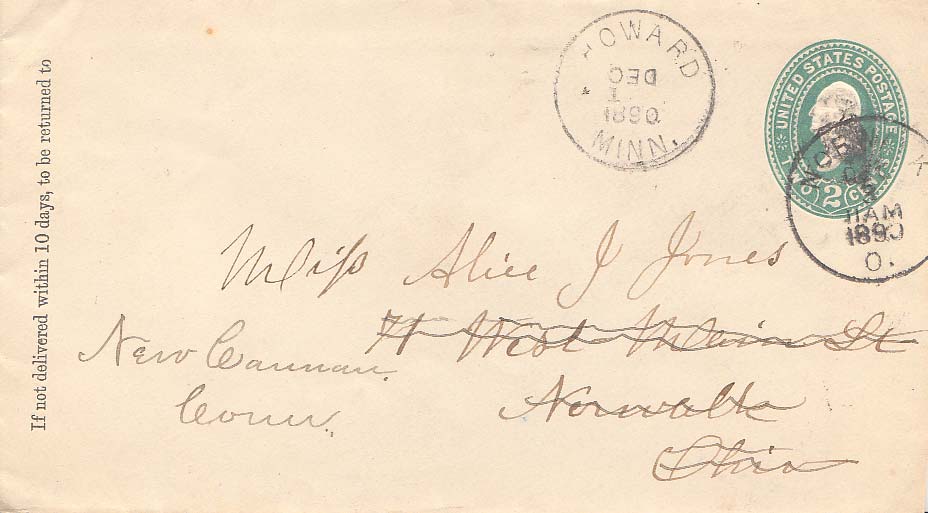 If not delivered within 10 days, to be returned to
HOWARD
DEC
1
1890
MINN.
UNITED STATES POSTAGE
2 CENTS
11 AM
1890
O.
Miss Alice J Jones
71 West Main St
Norwalk
Ohio
New Cannan
Conn.